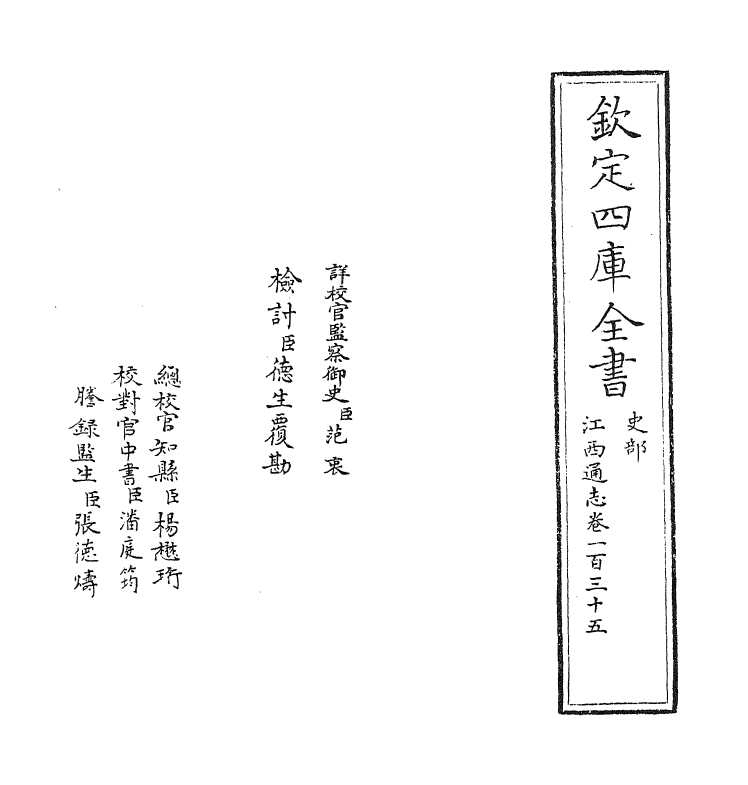 欽定四庫全書
史部
江西通志卷一百三十五
詳校官監察御史臣范衷
檢討臣德生覆勘
總校官知縣臣楊懋珩
校對官中書臣潘庭筠
謄錄監生臣張德燽